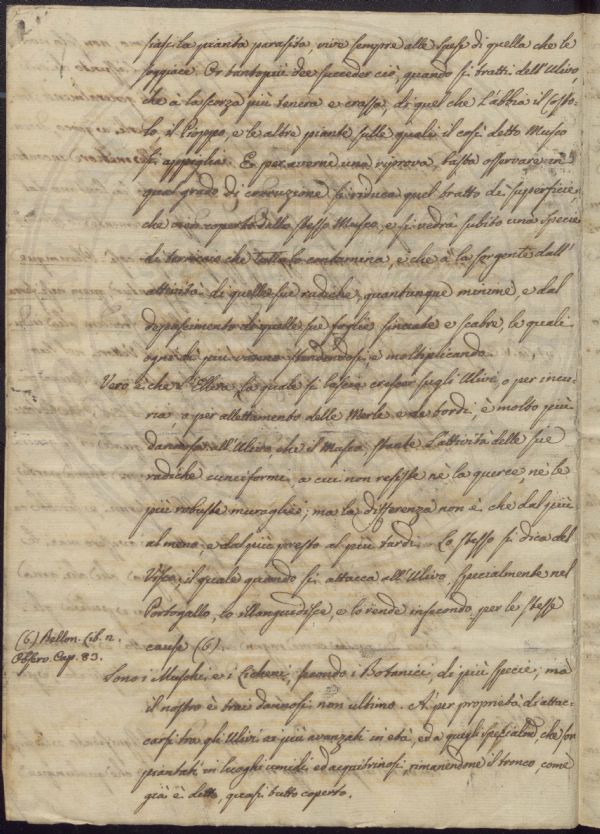 siasi la pianta parasita, vive sempre alle spese di quella che le
soggiace. Or tanto più dee succeder ciò, quando si tratti dell'Ulivo,
che à la scorza più tenera e crassa, di quel che l'abbia il
il Pioppo, e le altre piante sulle quali il così detto Musco
si appiglia. E per averne una riprova, basta osservare in
qual grado di corruzione si riduca quel tratto di superficie,
che vien coperto dello stesso Musco, e si vedrà subito una specie
di che tutta la contamina, e che à la sorgente dall'
attività di quelle sue radiche, quantunque minime, e dal
depascimento di quelle sue foglie sinuate e scabre, le quali
ogni dì più vanno stendendosi, e moltiplicando.
Vero è che l'Ellera, la quale si lascia crescer sugli Ulivi, o per incu-
ria, o per allettamento delle Merle e de Tordi, è molto più
dannosa all'Ulivo che il Musco, stante l'attività delle sue
radiche cuneiformi, a cui non resiste nè la querce, nè le
più robuste muraglie; ma la differenza non è che dal più
al meno, e dal più presto al più tardi. Lo stesso si dica del
Visco, il quale quando si attacca all'Ulivo, specialmente nel
Portogallo, lo illanguidisce, e lo rende infecondo per le stesse
cause (6).
(6) Bellon. Lib. 2.
Observ. Cap. 83.
Sono i Muschi e i Licheni, secondo i Botanici, di più specie; ma
il nostro è trai dannosi non ultimo. A' per proprietà di attac-
carsi tra gli Ulivi ai più avanzati in età, ed a quegli specialmte, che son
piantati in luoghi umidi ed acquitrinosi, rimanendone il tronco, come
già è detto, quasi tutto coperto.